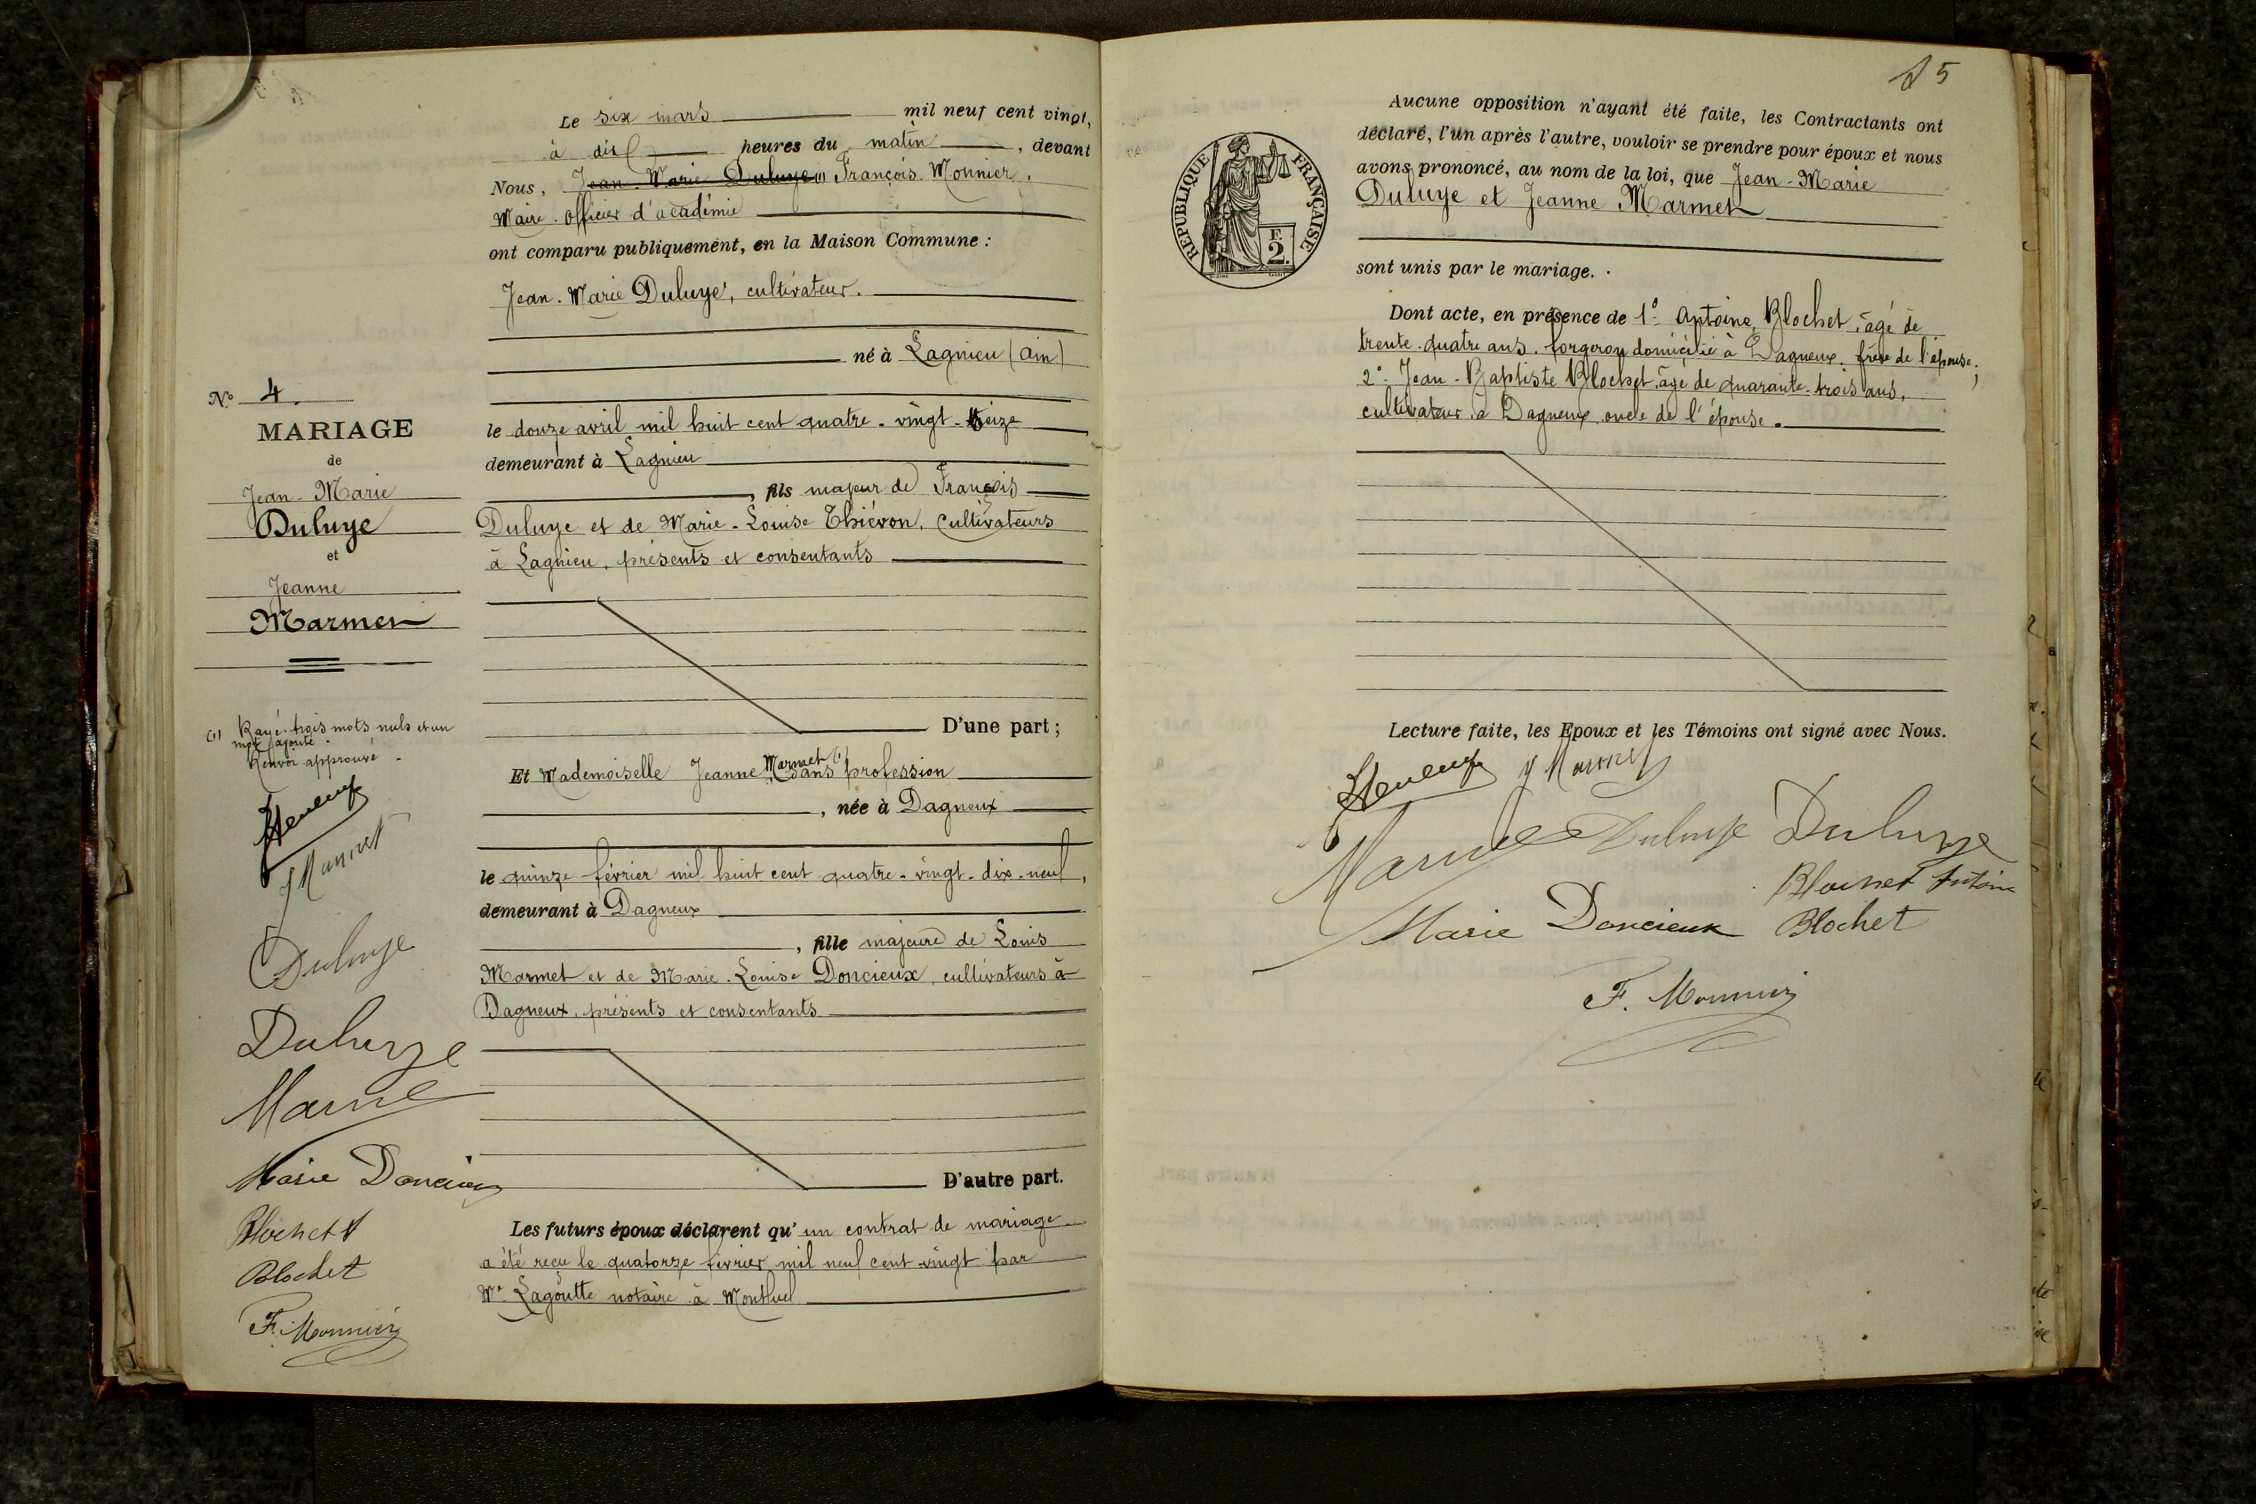 Le six mars mil neuf cent vingt,
à dix heures du matin, devant
Nous, Jean-Marie Duluye (1) François Monnier,
Maire. Officier d'académie
ont comparu publiquement, en la Maison Commune :
Jean-Marie Duluye, cultivateur.
né à Lagnieu (Ain)
le douze avril mil huit cent quatre-vingt-treize
demeurant à Lagnieu
, fils majeur de François
Duluye et de Marie-Louise Thiévon, cultivateurs
à Lagnieu, présents et consentants
D'une part ;
Et Mademoiselle Jeanne Marmet (1) sans profession
, née à Dagneux
le quinze février mil huit cent quatre-vingt-dix-neuf,
demeurant à Dagneux
, fille majeure de Louis
Marmet et de Marie-Louise Doncieux, cultivateurs à
Dagneux, présents et consentants
D'autre part.
Les futurs époux déclarent qu'un contrat de mariage
a été reçu le quatorze février mil neuf cent vingt par
Me Lagoutte notaire à Montluel
No 4.
MARIAGE
de
Jean-Marie
Duluye
et
Jeanne
Marmet
(1) Rayé trois mots nuls et un
mot ajouté.
Renvoi approuvé.
J Marmet
Duluye
Duluye
Marie Doncieux
Blochet A
Blochet
F. Monnier
15
RÉPUBLIQUE FRANÇAISE
F.
2.
Aucune opposition n'ayant été faite, les Contractants ont
déclaré, l'un après l'autre, vouloir se prendre pour époux et nous
avons prononcé, au nom de la loi, que Jean-Marie
Duluye et Jeanne Marmet
sont unis par le mariage.
Dont acte, en présence de 1° Antoine Blochet, âgé de
trente-quatre ans, forgeron domicilié à Dagneux, frère de l'épouse ;
2° Jean-Baptiste Blochet, âgé de quarante-trois ans,
cultivateur à Dagneux oncle de l'épouse.
Lecture faite, les Epoux et les Témoins ont signé avec Nous.
J Marmet
Duluye Duluye
Blochet Antoine
Marie Doncieux Blochet
F. Monnier